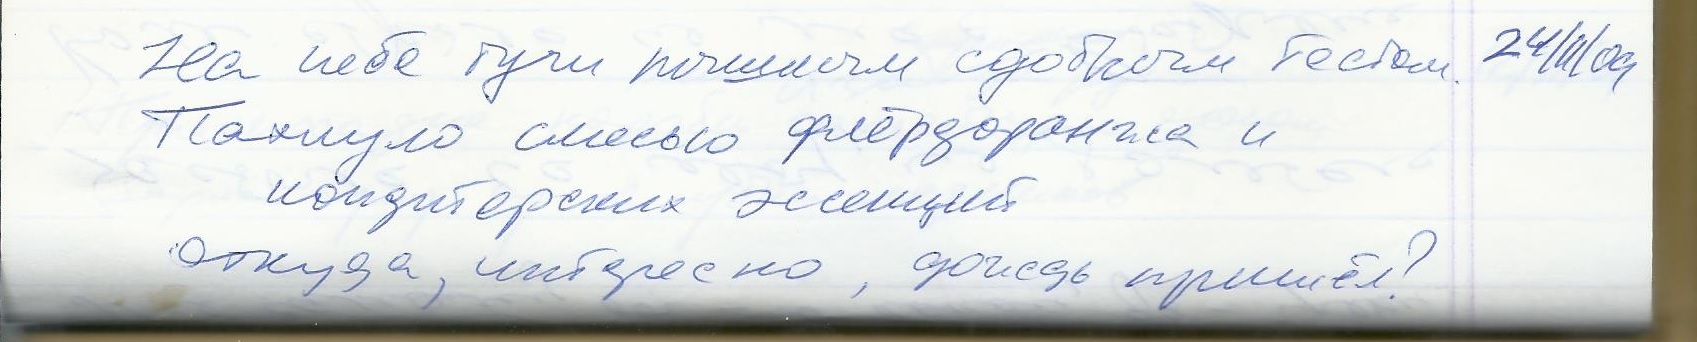 На небе тучи пышным сдобным тестом. 24/III/09
Пахнуло смесью флёрдоранжа и
кондитерских эссенций
Откуда, интересно, дождь пришёл?